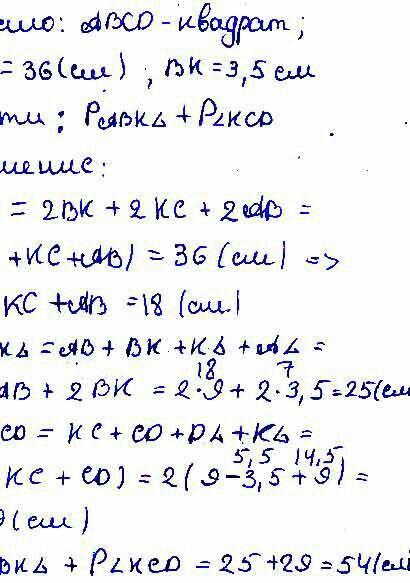 ено: ABCD - квадрат;
= 36 (см), BK = 3,5 см
ти: PABKL + PLKCD
шение:
= 2BK + 2KC + 2AB =
+ KC + AB) = 36 (см) =>
KC + AB = 18 (см)
KL = AB + BK + KL + AL =
18 7
AB + 2BK = 2·9 + 2·3,5 = 25 (см
CD = KC + CD + DL + KL =
5,5 14,5
KC + CD) = 2(9 - 3,5 + 9) =
9 (см)
BKL + PLKCD = 25 + 29 = 54 (см